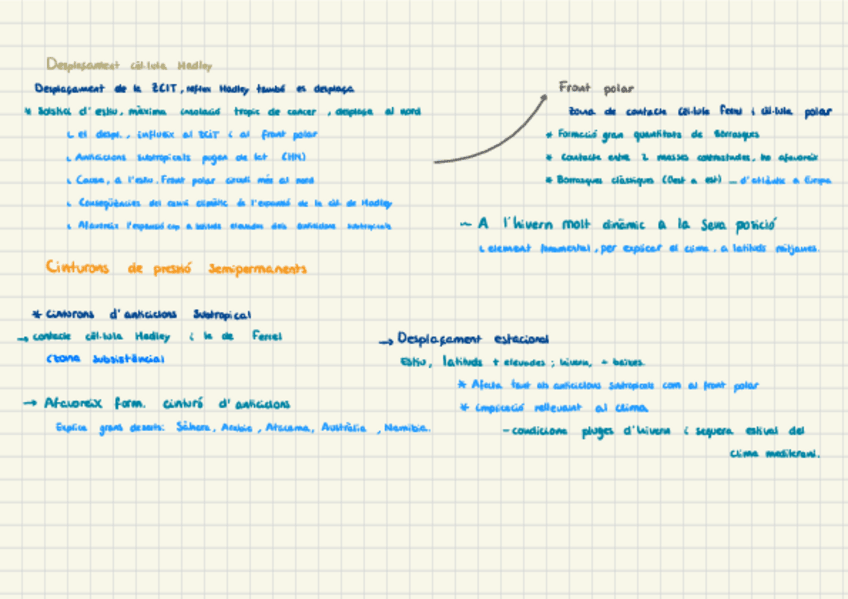 Desplaçament cèl·lula Hadley
Desplaçament de la ZCIT, reflex Hadley també es desplaça
* Solstici d'estiu, màxima insolació tropic de cancer, desplaça al nord
↳ el despl., influeix al ZCIT i al front polar
↳ Anticiclons subtropicals pugen de lat (HN)
↳ Causa, a l'estiu. Front polar circuli més al nord
↳ Conseqüències del canvi climàtic és l'expansió de la cèl. de Hadley
↳ Afavoreix l'expansió cap a latituds elevades dels anticiclons subtropicals
Front polar
zona de contacte Cèl·lula Ferrel i cèl·lula polar
* Formació gran quantitats de Borrasques
* Contacte entre 2 masses contrastades, ho afavoreix
* Borrasques clàssiques (Oest a est) _ d'atlàntic a Europa
~ A l'hivern molt dinàmic a la seva posició
↳ element fonamental, per explicar el clima, a latituds mitjanes.
Cinturons de pressió semipermanents
* Cinturons d'anticiclons Subtropical
→ contacte cèl·lula Hadley i la de Ferrel
(zona subsistència)
→ Afavoreix form. cinturó d'anticiclons
Explica grans deserts: Sàhara, Aràbia, Atacama, Austràlia, Namíbia.
→ Desplaçament estacional
Estiu, latituds + elevades; hivern, + baixes.
* Afecta tant als anticiclons subtropicals com al front polar
* implicació rellevant al clima
- condiciona pluges d'hivern i sequera estival del
clima mediterrani.